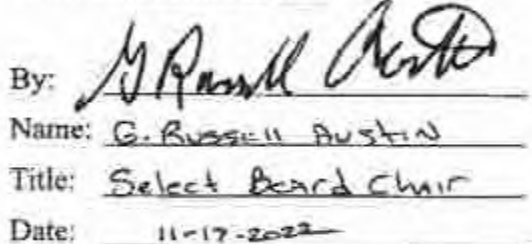 By: G Russell Austin
Name: G. Russell Austin
Title: Select Board Chair
Date: 11-17-2022